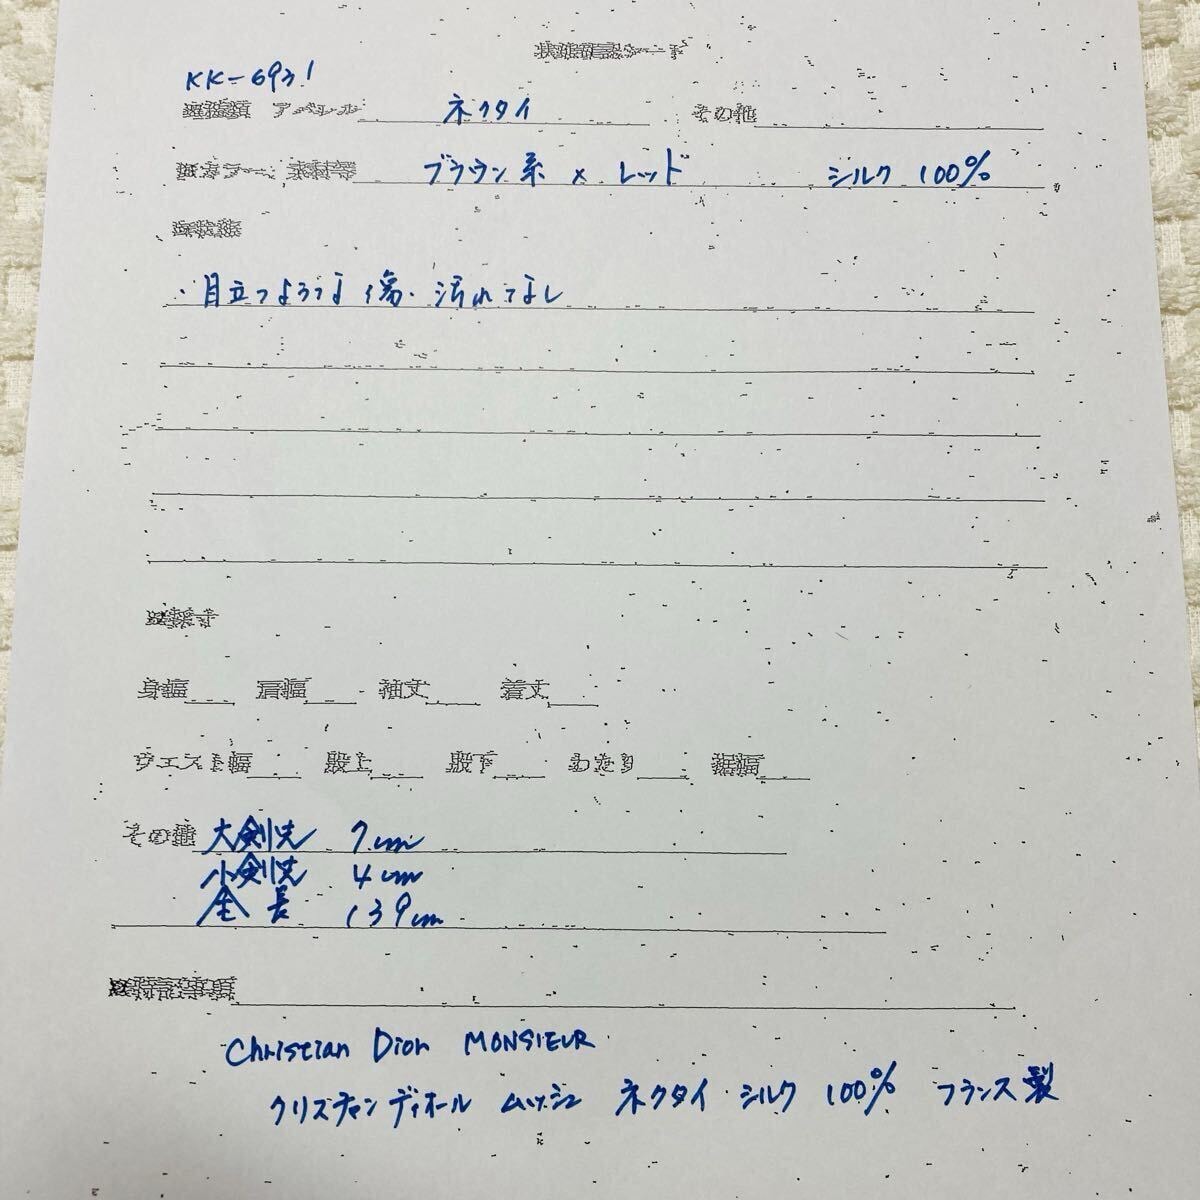 状態確認シート
KK-6931
アパレル ネクタイ その他
カラー、素材等 ブラウン系 × レッド シルク 100%
・目立つような傷・汚れなし
採寸
身幅 肩幅 袖丈 着丈
ウエスト幅 股上 股下 わたり 裾幅
その他 大剣先 7cm
小剣先 4cm
全長 139cm
特記事項
Christian Dior MONSIEUR
クリスチャンディオール ムッシュ ネクタイ シルク 100% フランス製